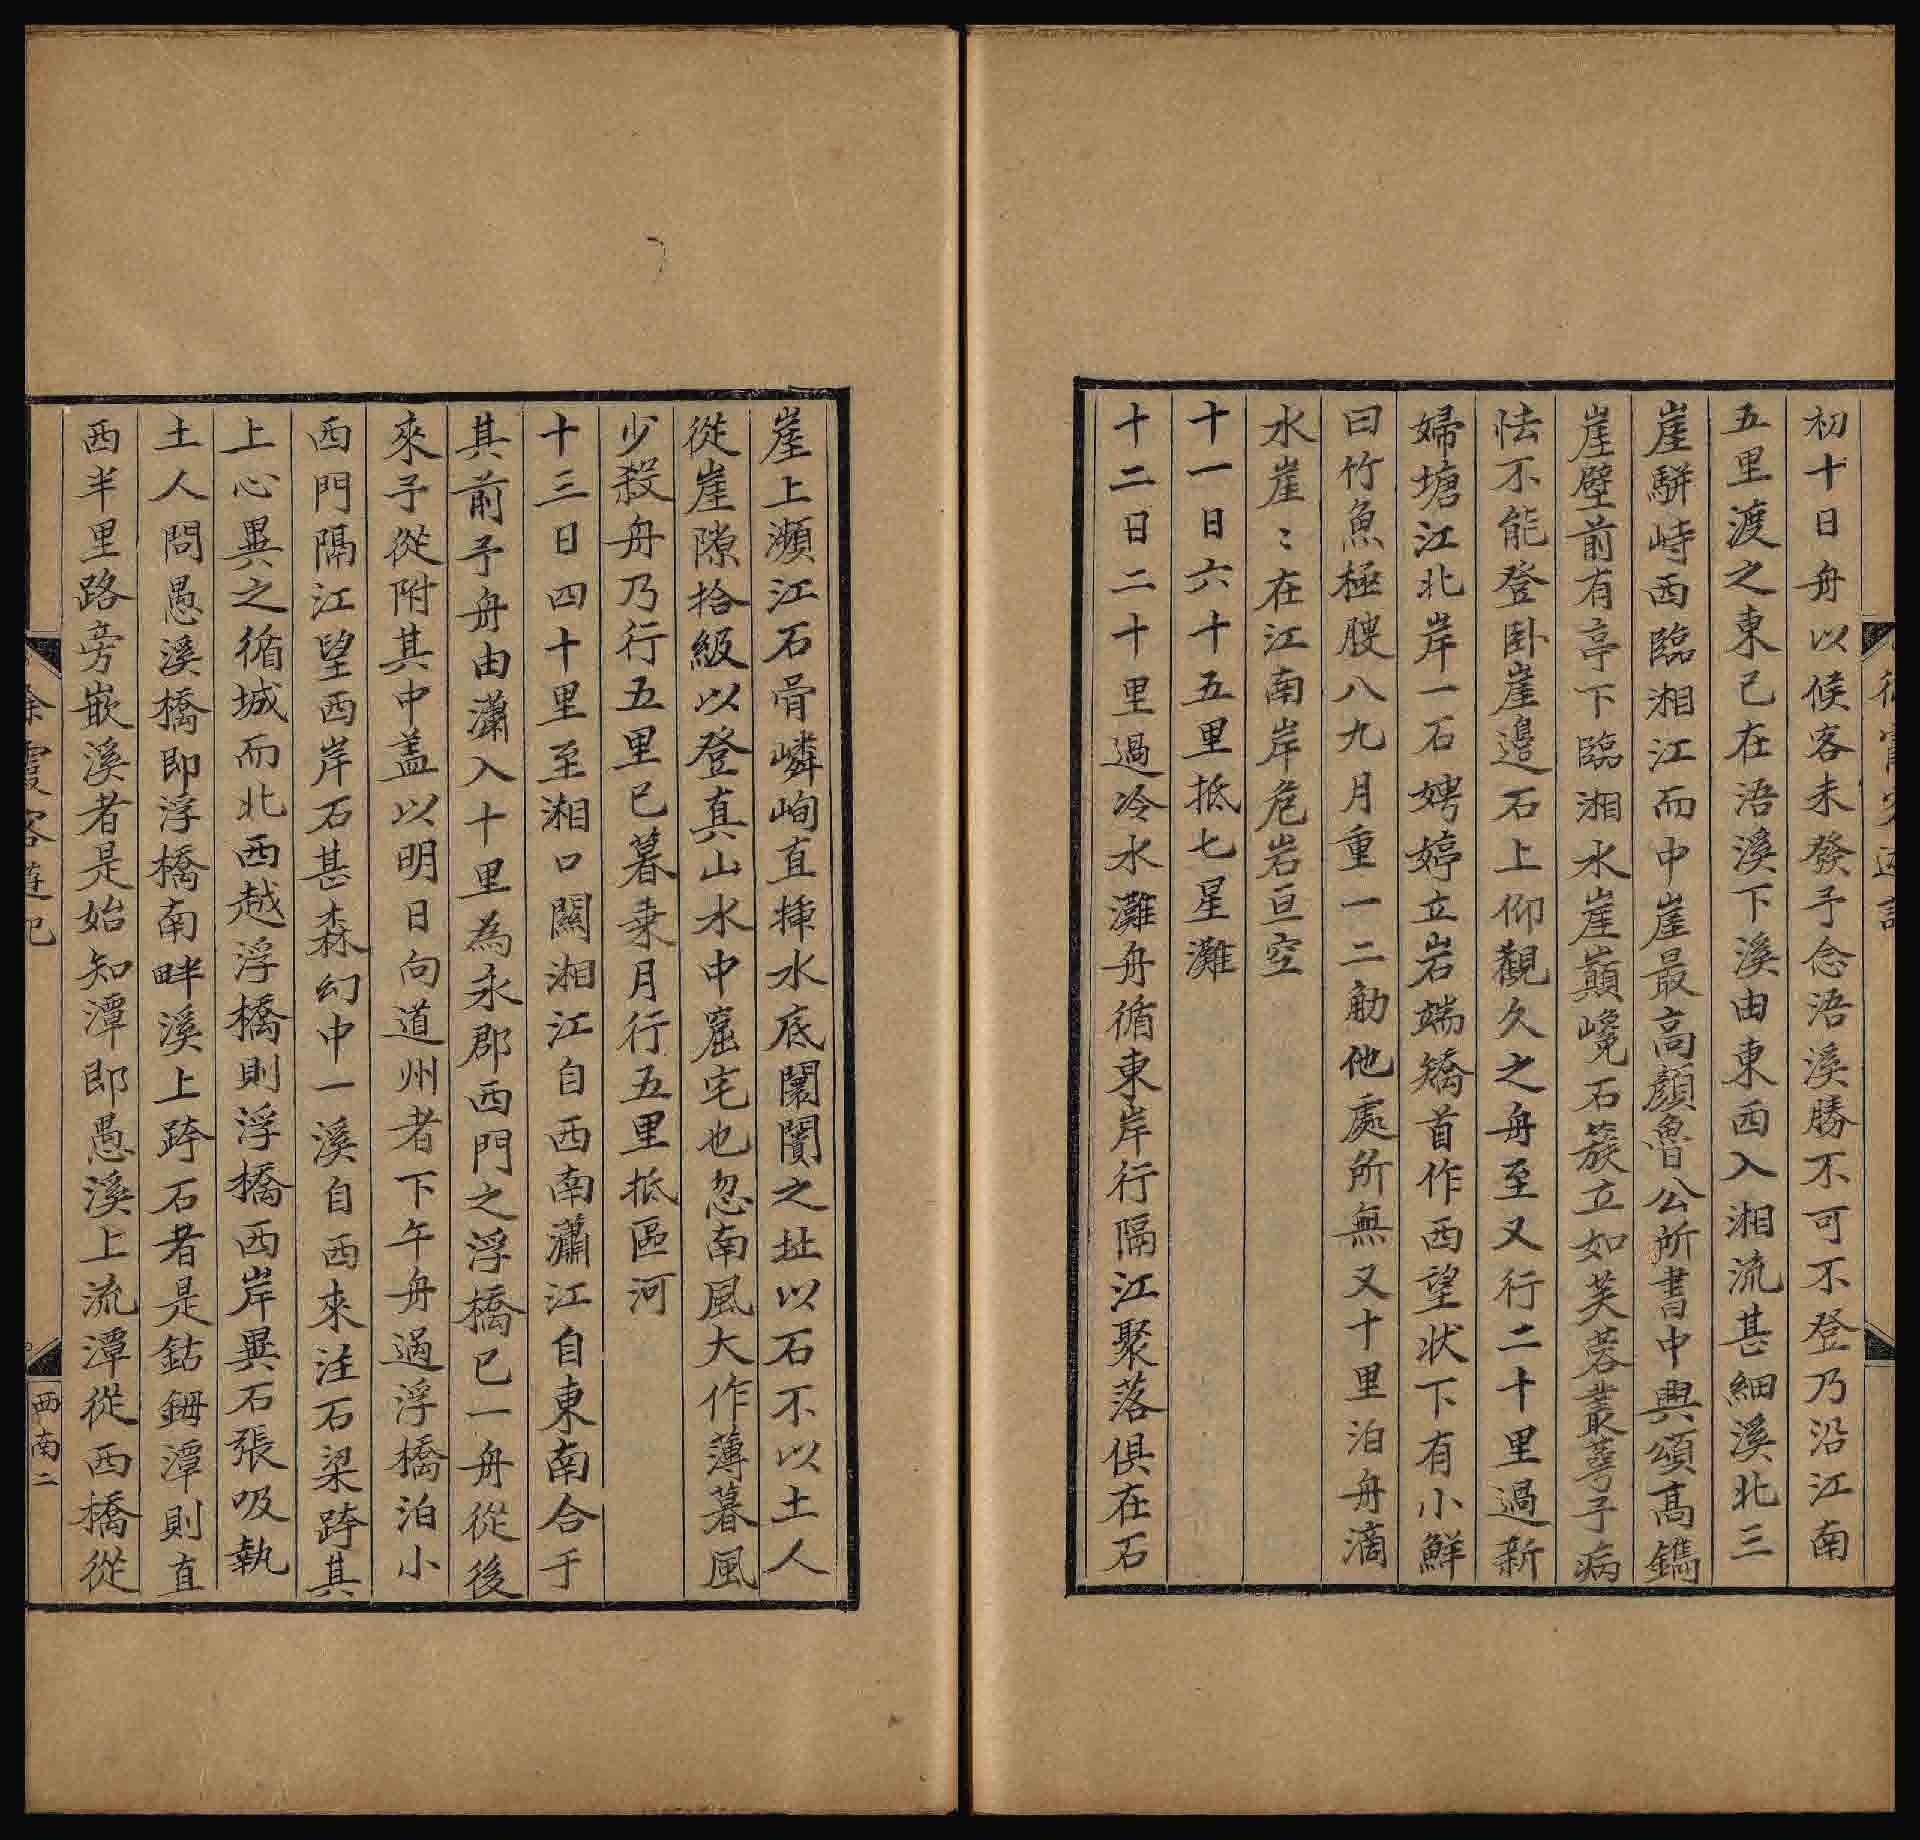 初十日舟以候客未發予念浯溪勝不可不登乃沿江南
五里渡之東已在浯溪下溪由東西入湘流甚細溪北三
崖駢峙西臨湘江而中崖最高顏魯公所書中興頌高鐫
崖壁前有亭下臨湘水崖巔巉石簇立如芙蓉叢萼予病
怯不能登卧崖邊石上仰觀久之舟至又行二十里過新
婦塘江北岸一石娉婷立岩端矯首作西望状下有小鮮
曰竹魚極腴八九月重一二觔他處所無又十里泊舟滴
水崖〻在江南岸危岩亘空
十一日六十五里抵七星灘
十二日二十里過冷水灘舟循東岸行隔江聚落俱在石
崖上瀕江石骨嶙峋直揷水底闤闠之址以石不以土人
從崖隙拾級以登真山水中窟宅也忽南風大作薄暮風
少殺舟乃行五里已暮乗月行五里抵區河
十三日四十里至湘口關湘江自西南瀟江自東南合于
其前予舟由瀟入十里為永郡西門之浮橋已一舟從後
來予從附其中盖以明日向道州者下午舟過浮橋泊小
西門隔江望西岸石甚森幻中一溪自西來注石梁跨其
上心異之循城而北西越浮橋則浮橋西岸異石張吸執
土人問愚溪橋即浮橋南畔溪上跨石者是鈷鉧潭則直
西半里路旁嵌溪者是始知潭即愚溪上流潭從西橋從
徐霞客遊記
西南二